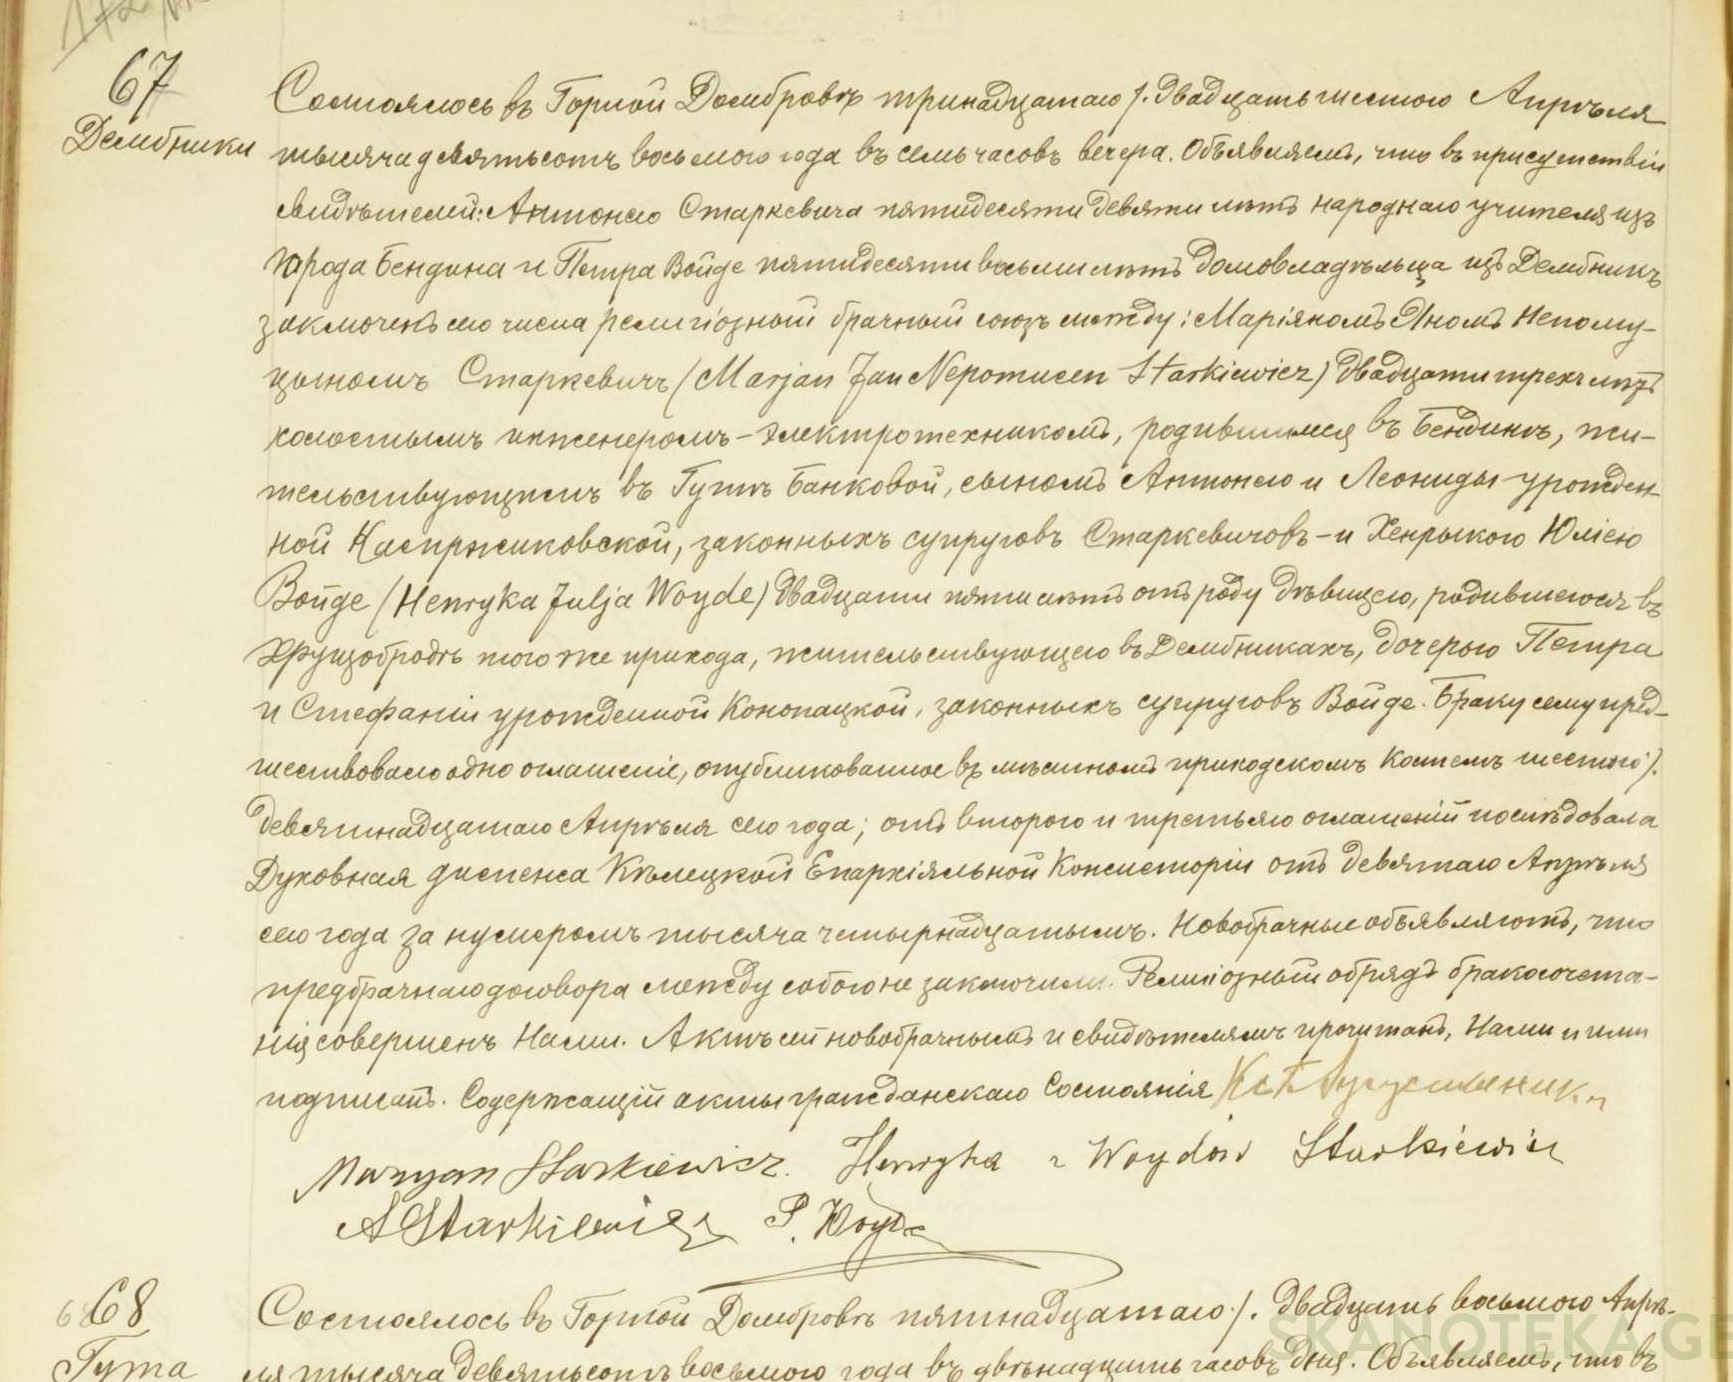 67
Дембники
Состоялось въ Горной Домбровѣ тринадцатаго /. двадцать шестого Апрѣля
тысяча девятьсотъ восьмого года въ семь часовъ вечера. Объявляемъ, что въ присутствіи
свидѣтелей: Антонего Старкевича пятидесяти девяти лѣтъ народнаго учителя изъ
города Бендина и Петра Войде пятидесяти восьми лѣтъ домовладѣльца изъ Дембникъ
заключенъ сего числа религіозный брачный союзъ между: Маріяномъ Яномъ Непому-
цыномъ Старкевичъ (Marjan Jan Nepomucen Starkiewicz) двадцати трехъ лѣтъ
холостымъ инженеромъ-электротехникомъ, родившимся въ Бендинѣ, жи-
тельствующимъ въ Гутѣ Банковой, сыномъ Антонего и Леониды урожден-
ной Каспржиковской, законныхъ супруговъ Старкевичовъ - и Хенрыкою Юліею
Войде (Henryka Julja Woyde) двадцати пяти лѣтъ отъ роду дѣвицею, родившеюся въ
Хрущобродѣ того же прихода, жительствующею въ Дембникахъ, дочерью Петра
и Стефаніи урожденной Конопацкой, законныхъ супруговъ Войде. Браку сему пред-
шествовало одно оглашеніе, опубликованное въ мѣстномъ приходскомъ Костелѣ шестого /.
девятнадцатаго Апрѣля сего года; отъ второго и третьяго оглашеній послѣдовала
Духовная диспенса Кѣлецкой Епархіяльной Консисторіи отъ девятаго Апрѣля
сего года за нумеромъ тысяча четырнадцатымъ. Новобрачные объявляютъ, что
предбрачнаго договора между собою не заключили. Религіозный обрядъ бракосочета-
нія совершенъ Нами. Актъ сей новобрачнымъ и свидѣтелямъ прочитанъ, Нами и ими
подписанъ. Содержащій акты гражданскаго Состоянія
Maryan Starkiewicz. Henryka z Woydów Starkiewicz
A Starkiewicz P. Woyde
68
Гута
Состоялось въ Горной Домбровѣ пятнадцатаго /. двадцать восьмого Апрѣ-
ля тысяча девятьсотъ восьмого года въ двѣнадцать часовъ дня. Объявляемъ, что въ
SKANOTEKA.GE